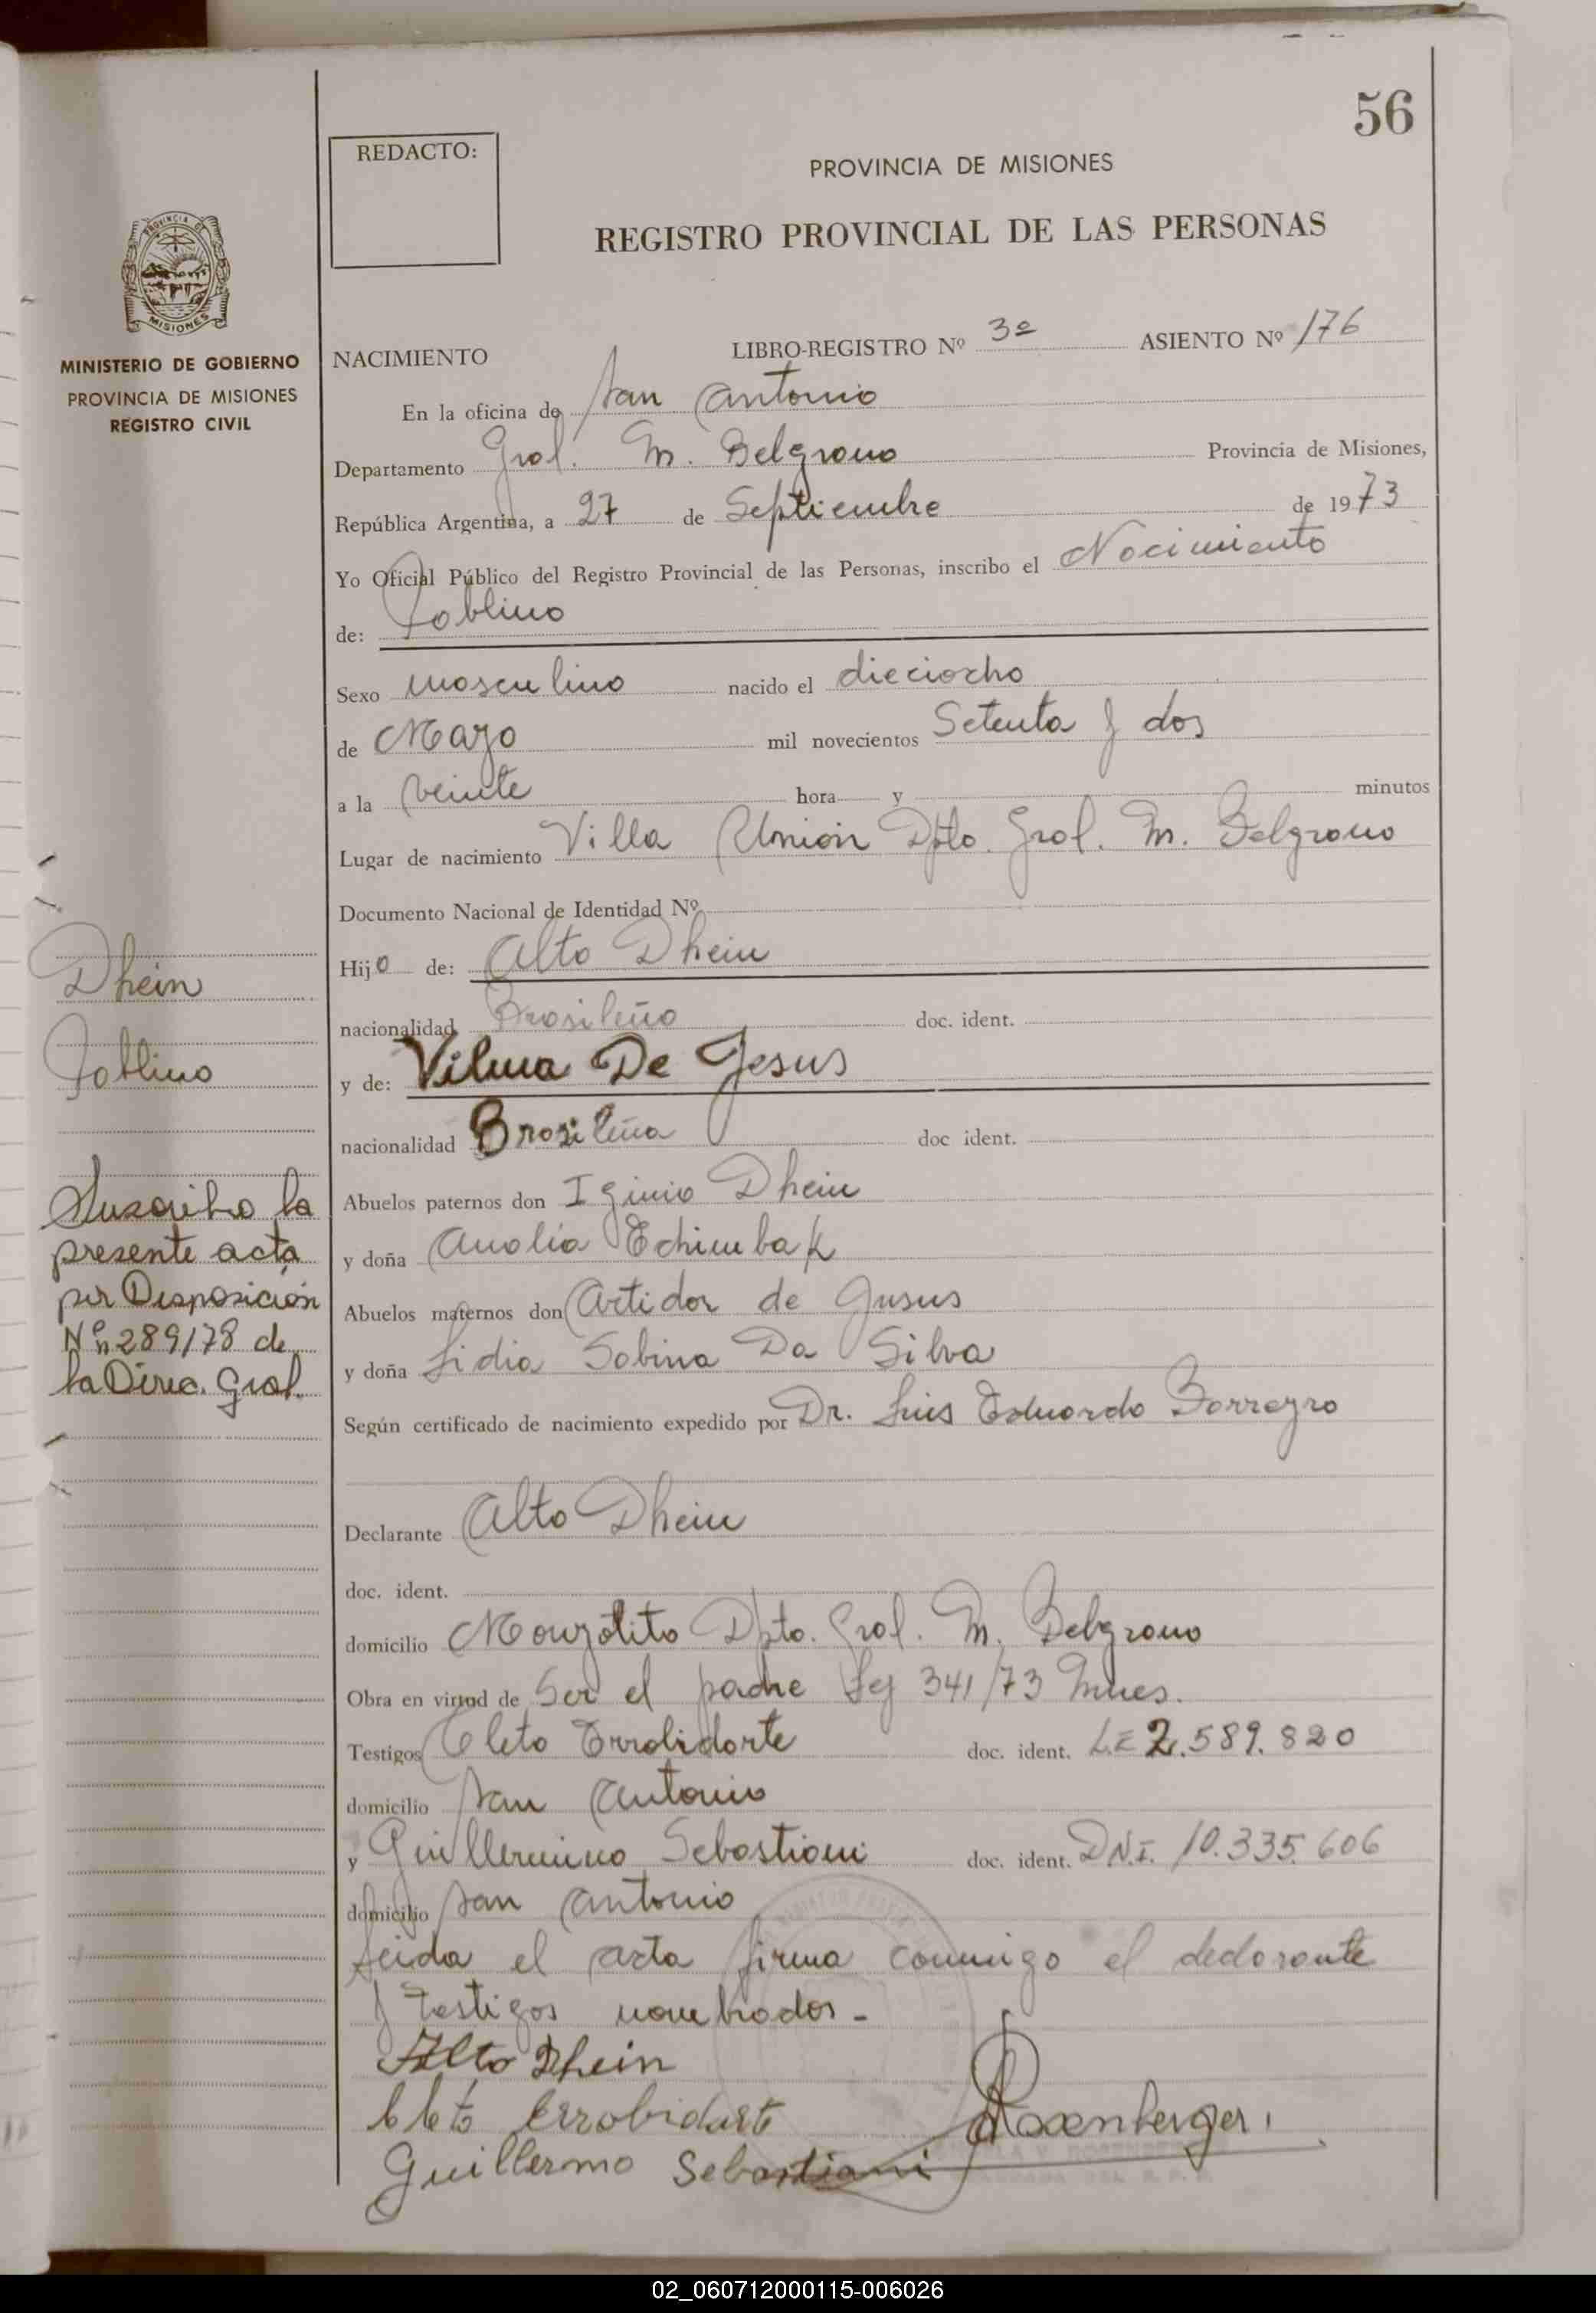 56
REDACTO:
PROVINCIA DE MISIONES
REGISTRO PROVINCIAL DE LAS PERSONAS
MINISTERIO DE GOBIERNO
PROVINCIA DE MISIONES
REGISTRO CIVIL
NACIMIENTO LIBRO-REGISTRO Nº 3º ASIENTO Nº 176
En la oficina de San Antonio
Departamento Gral. M. Belgrano Provincia de Misiones,
República Argentina, a 27 de Septiembre de 1973
Yo Oficial Público del Registro Provincial de las Personas, inscribo el Nacimiento
de:
Sexo masculino nacido el dieciocho
de Mayo mil novecientos Setenta y dos
a la veinte hora y minutos
Lugar de nacimiento Villa Unión Dpto. Gral. M. Belgrano
Documento Nacional de Identidad Nº
Hijo de: Alto Dhein
nacionalidad Brasileño doc. ident.
y de: Vilma De Jesus
nacionalidad Brasileña doc ident.
Abuelos paternos don Iginio Dhein
y doña Analia Echimbak
Abuelos maternos don Artidor de Jusus
y doña Lidia Sabina Da Silva
Según certificado de nacimiento expedido por Dr. Luis Eduardo Borreyro
Declarante Alto Dhein
doc. ident.
domicilio Dpto. Gral. M. Belgrano
Obra en virtud de Ser el padre Ley 341/73 Mnes.
Testigos Cleto Errobidarte doc. ident. L.E 2.589.820
domicilio San Antonio
y Guillermino Sebastiani doc. ident. D.N.I. 10.335.606
domicilio San Antonio
Leida el acta firma conmigo el declarante
y testigos nombrados.-
Alto Dhein
Cleto Errobidarte
Rosenberger
Guillermo Sebastiani
Dhein
Suscribo la
presente acta
por Disposición
Nº 289/78 de
la Direc. Gral.
02_060712000115-006026